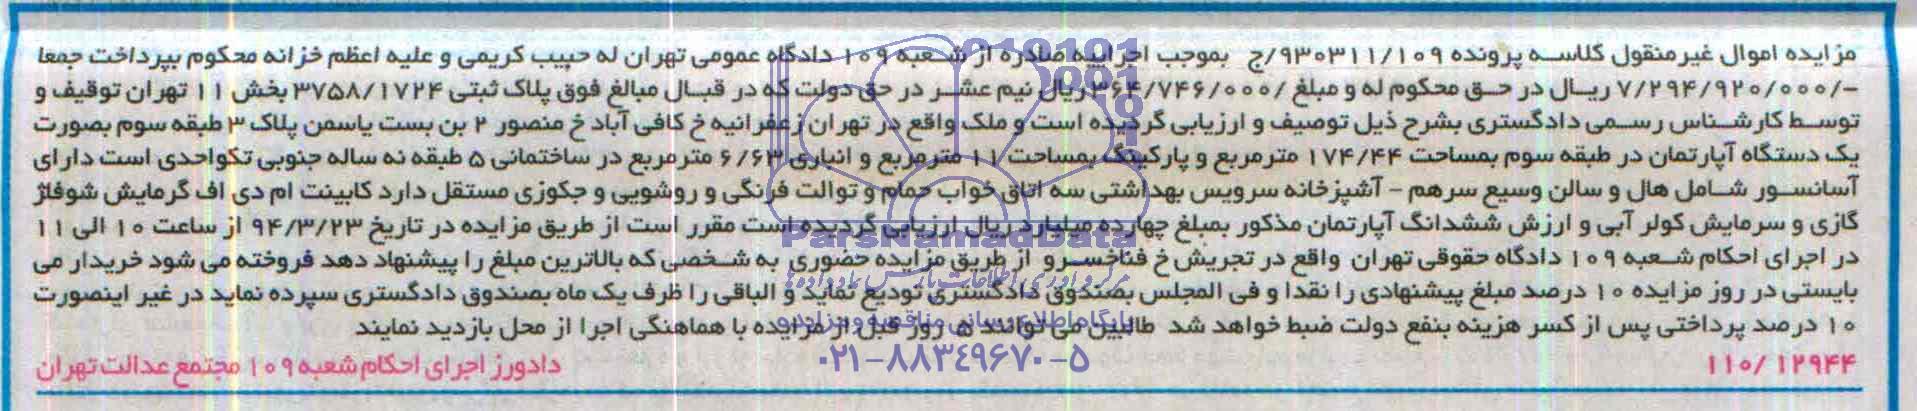 مزایده اموال غیرمنقول کلاسه پرونده ۹۳۰۳۱۱/۱۰۹/ج بموجب اجراییه صادره از شعبه ۱۰۹ دادگاه عمومی تهران له حبیب کریمی و علیه اعظم خزانه محکوم بپرداخت جمعا
-/۷/۲۹۴/۹۲۰/۰۰۰ ریال در حق محکوم له و مبلغ /۳۶۴/۷۴۶/۰۰۰ ریال نیم عشر در حق دولت که در قبال مبالغ فوق پلاک ثبتی ۳۷۵۸/۱۷۲۴ بخش ۱۱ تهران توقیف و
توسط کارشناس رسمی دادگستری بشرح ذیل توصیف و ارزیابی گردیده است و ملک واقع در تهران زعفرانیه خ کافی آباد خ منصور ۲ بن بست یاسمن پلاک ۳ طبقه سوم بصورت
یک دستگاه آپارتمان در طبقه سوم بمساحت ۱۷۴/۴۴ مترمربع و پارکینگ بمساحت ۱۱ مترمربع و انباری ۶/۶۳ مترمربع در ساختمانی ۵ طبقه نه ساله جنوبی تکواحدی است دارای
آسانسور شامل هال و سالن وسیع سرهم - آشپزخانه سرویس بهداشتی سه اتاق خواب حمام و توالت فرنگی و روشویی و جکوزی مستقل دارد کابینت ام دی اف گرمایش شوفاژ
گازی و سرمایش کولر آبی و ارزش ششدانگ آپارتمان مذکور بمبلغ چهارده میلیارد ریال ارزیابی گردیده است مقرر است از طریق مزایده در تاریخ ۹۴/۳/۲۳ از ساعت ۱۰ الی ۱۱
در اجرای احکام شعبه ۱۰۹ دادگاه حقوقی تهران واقع در تجریش خ فناخسرو از طریق مزایده حضوری به شخصی که بالاترین مبلغ را پیشنهاد دهد فروخته می شود خریدار می
بایستی در روز مزایده ۱۰ درصد مبلغ پیشنهادی را نقدا و فی المجلس بصندوق دادگستری تودیع نماید و الباقی را ظرف یک ماه بصندوق دادگستری سپرده نماید در غیر اینصورت
۱۰ درصد پرداختی پس از کسر هزینه بنفع دولت ضبط خواهد شد طالبین می توانند ۵ روز قبل از مزایده با هماهنگی اجرا از محل بازدید نمایند
۱۱۰/۱۲۹۴۴ دادورز اجرای احکام شعبه ۱۰۹ مجتمع عدالت تهران
ParsNamadData
پایگاه اطلاع رسانی مناقصه و مزایده
۰۲۱-۸۸۳۴۹۶۷۰-۵